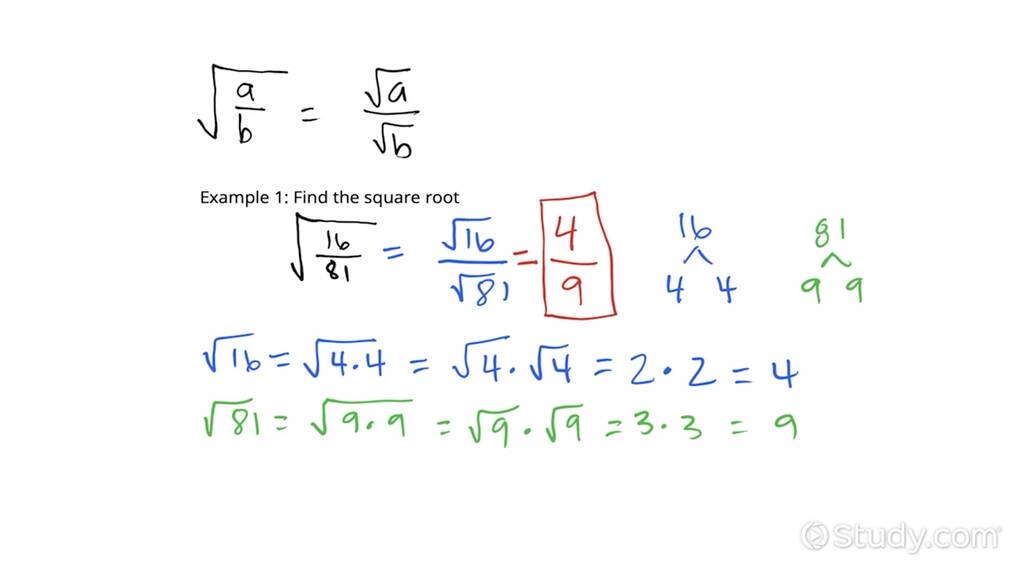 √(a/b) = √a/√b
Example 1: Find the square root
√(16/81) = √16/√81 = 4/9
16
4 4
81
9 9
√16 = √4·4 = √4·√4 = 2·2 = 4
√81 = √9·9 = √9·√9 = 3·3 = 9
Study.com